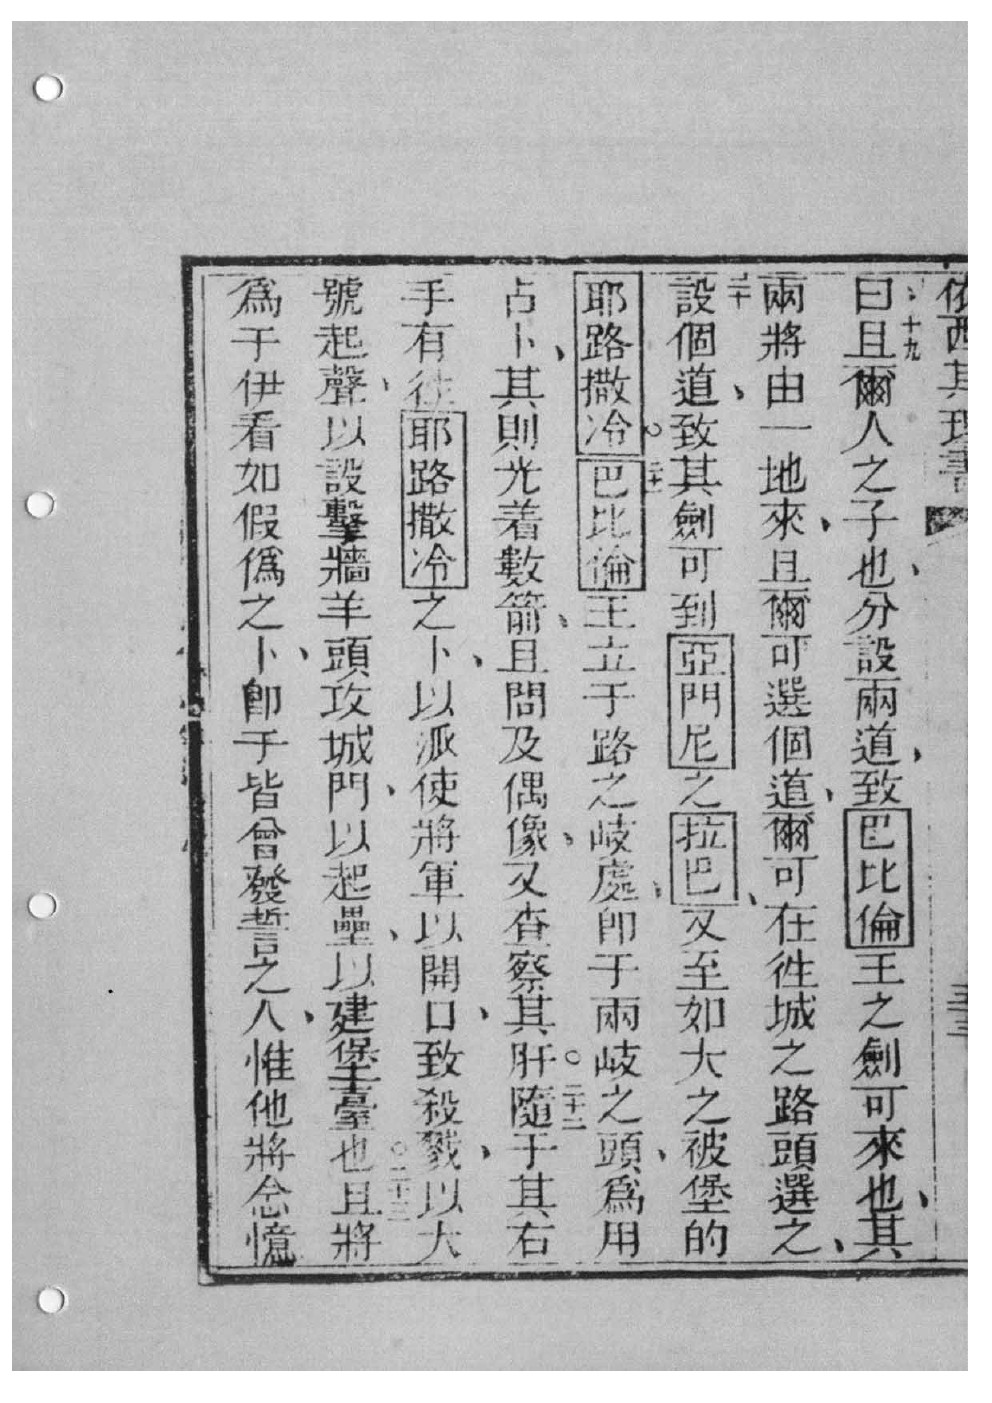 依西其理書
十九
曰且爾人之子也、分設兩道、致巴比倫王之劍可來也、其
兩將由一地來、且爾可選個道、爾可在徃城之路頭選之、
二十
設個道、致其劍可到亞門尼之拉巴、又至如大之被堡的
耶路撒冷。二十一巴比倫王立于路之岐處、卽于兩岐之頭、爲用
占卜、其則光着數箭、且問及偶像、又查察其肝。二十二隨于其右
手有徃耶路撒冷之卜、以派使將軍以開口、致殺戮、以大
號起聲、以設擊牆羊頭攻城門、以起壘、以建堡臺也。二十三且將
爲于伊看如假僞之卜、卽于皆曾發誓之人、惟他將念憶